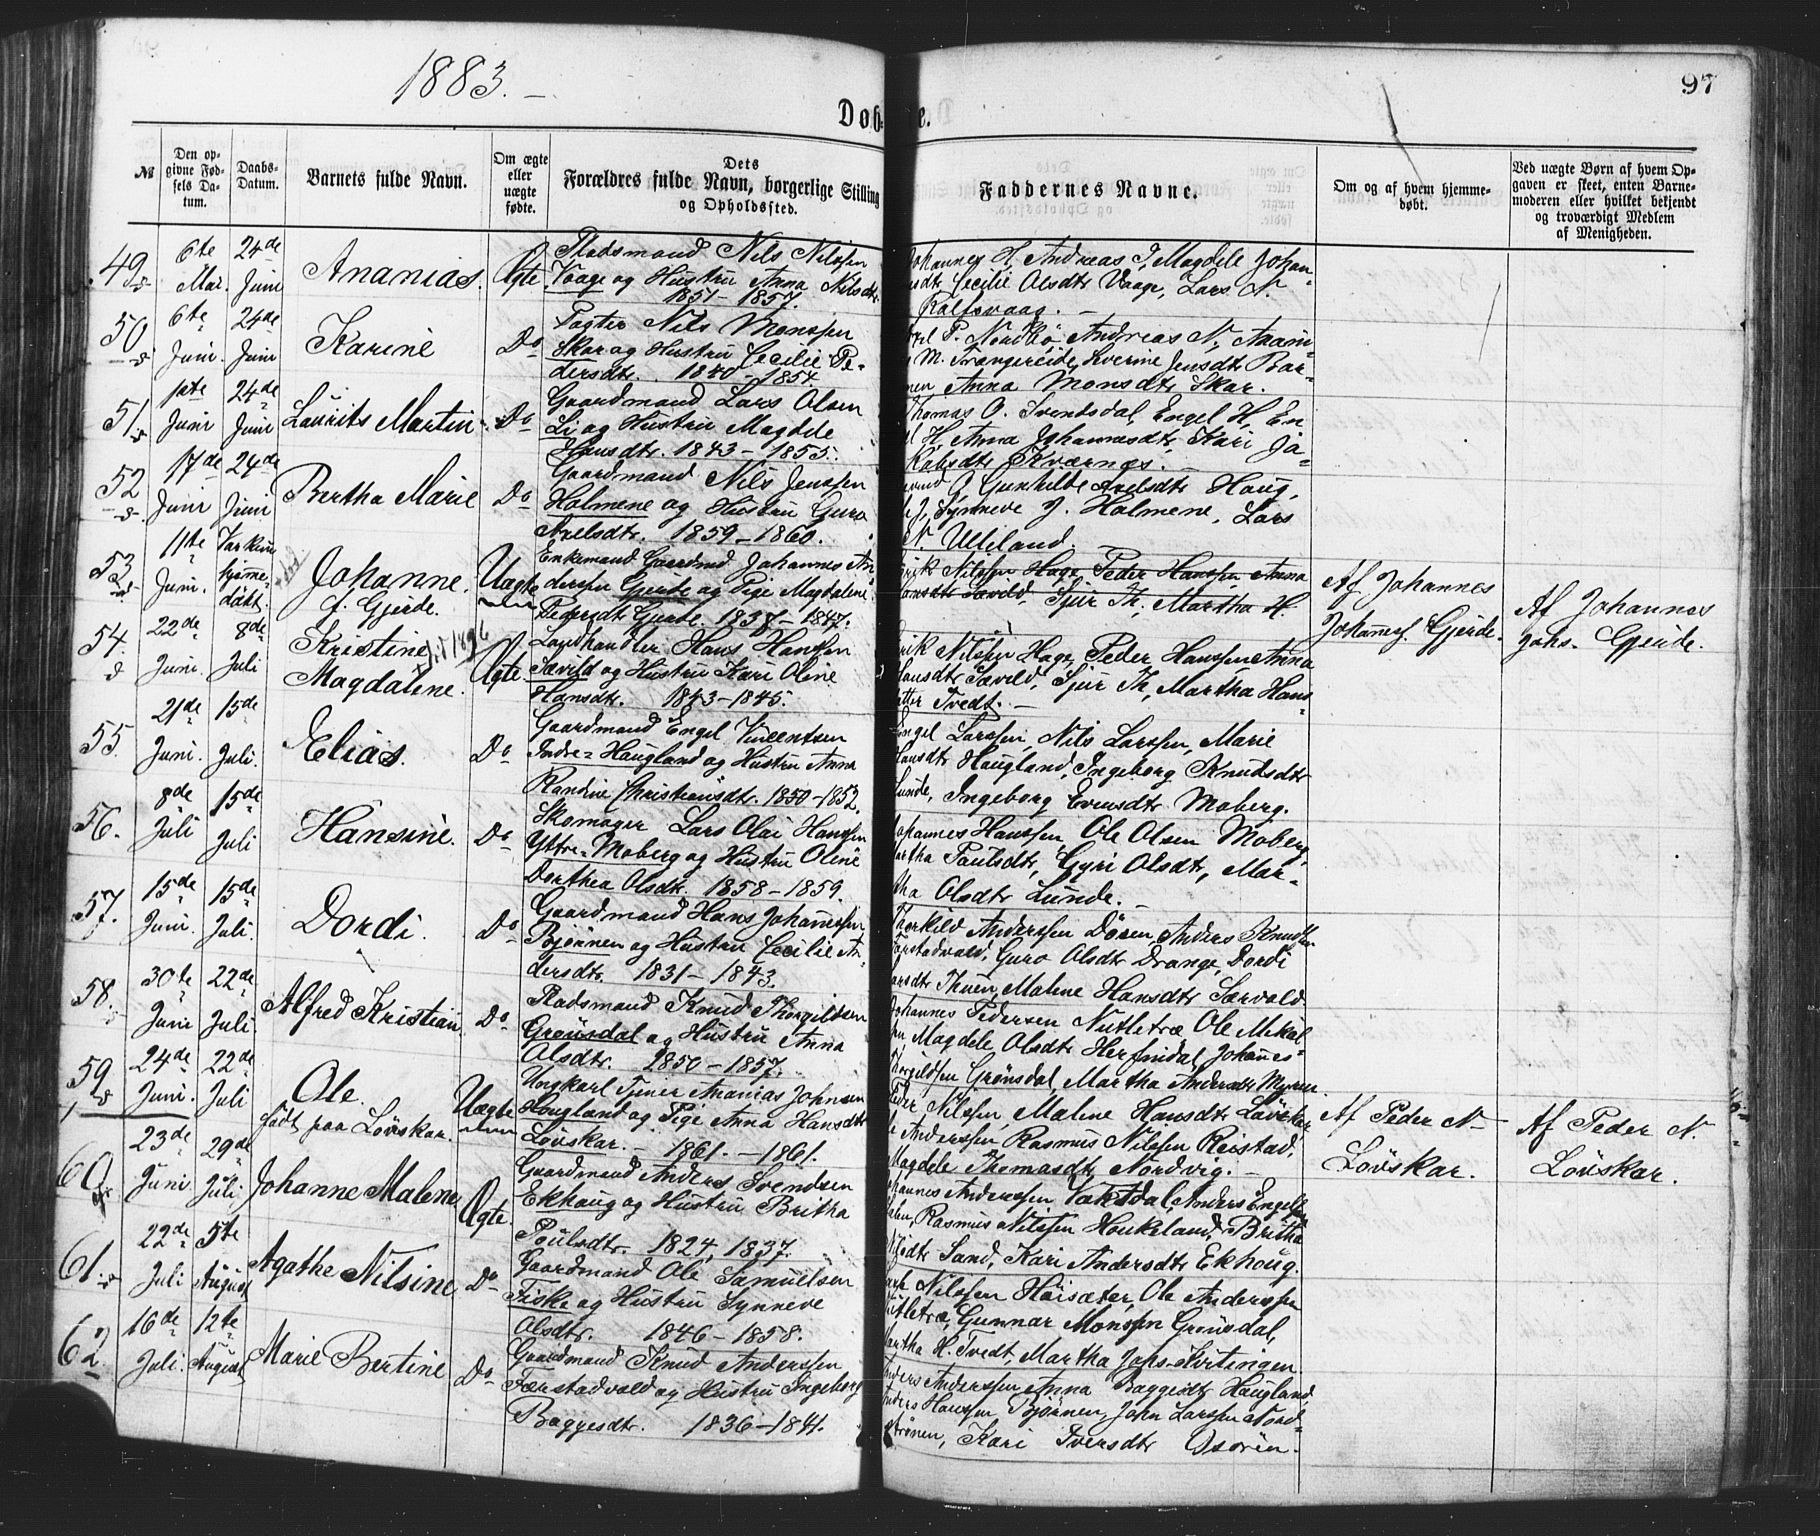 1883.
Døb
e.
97
№
Den opgivne Fødsels Datum.
Daabs-Datum.
Barnets fulde Navn.
Om ægte eller uægte fødte.
Dets
Forældres fulde Navn, borgerlige Stilling
og Opholdssted.
Faddernes Navne.
Om og af hvem hjemmedøbt.
Ved uægte Børn af hvem Opgaven er skeet, enten Barnemoderen eller hvilket bekjendt og troværdigt Medlem af Menigheden.
49
6te Mai.
24de Juni
Ananias.
Ægte
Pladsmand Nils Nilssen
Vaage og Hustru Anna Nilsdtr
1851 - 1857.
Johannes H. Andreas J. Magdele Johan-
Cecilie Olsdtr Vaage, Lars N.
Kalfsvaag.
50
6te Juni.
24de Juni
Karine
Do
Pagter Nils Monssen
Skar og Hustru Cecilie Pe-
dersdtr. 1840 - 1854
P. Nordbø Andreas N.
M. Trangereide, Severine Jensdtr Bar-
men Anna Monsdtr Skar.
51
1ste Juni
24de Juni
Laurits Martin
Do
Gaardmand Lars Olsen
Li og Hustru Magdele
Hansdtr. 1843 - 1855.
Thomas O. Svendsdal, Engel H. En
H. Anna Johannesdtr, Kari Ja-
kobsdtr Kværnæs.
52
17de Juni
24de Juni
Bertha Marie
Do
Gaardmand Nils Jenssen
Holmene og Hustru Guro
Axelsdtr. 1859 - 1860.
G. Gunhilde Axelsdtr Haug,
J. Synneve J. Holmene, Lars
N. Ulleland.
53
11te Juni.
Var kun hjemmedøbt.
Johanne.
f. Gjerde.
Uægte
Enkemand Gaardmd Johannes An-
derssen Gjerde og Pige Magdalene
Pedersdt Gjerde. 1837 - 1847.
Erik Nilssen Hage, Peder Hanssen Anna
Hansdt Sævild, Sjur Th. Martha H.
Af Johannes
Johannesf. Gjerde.
Af Johannes
Johs. Gjerde.
54.
22de Juni.
8de Juli
Kristine
Magdalene.
1896
Ægte
Landhandler Hans Hanssen
Sævild og Hustru Kari Oline
Hansdtr. 1843 - 1845.
Erik Nilssen Hage, Peder Hanssen Anna
Hansdtr Sævild, Sjur Th, Martha Hans-
datter Tvedt.
55.
21de Juni.
15de Juli.
Elias.
Do
Gaardmand Engel Vincentsen
Indre-Haugland og Hustru Anna
Randine Christiansdtr. 1850 - 1852.
Engel Larssen, Nils Larssen, Marie
Hansdt Haugland, Ingeborg Knudsdtr
Lunde, Ingeborg Evensdtr Moberg.
56.
8de Juli
15de Juli
Hansine.
Do
Skomager Lars Olai Hanssen
Yttre-Moberg og Hustru Oline
Dorthea Olsdtr. 1858 - 1859.
Johannes Hanssen, Ole Olsen Moberg,
Martha Poulsdtr, Gyri Olsdt, Mar-
tha Olsdtr Lunde.
57.
15de Juni.
15de Juli.
Dordi.
Do
Gaardmand Hans Johannessen
Bjørnen og Hustru Cecilie An-
dersdtr. 1831 - 1843.
Thorkild Anderssen Døsen Anders Knudsen
Færstadvald, Guro Olsdtr Drange, Dordi
Larsdtr Thuen, Malene Hansdtr Særvold.
58.
30te Juni
22de Juli
Alfred Kristian
Do
Pladsmand Knud Thorgilssen
Grønsdal og Hustru Anna
Olsdtr. 1850 - 1857.
Johannes Pedersen Nutletræ Ole Mikal
Magdele Olsdtr Herfindal, Johannes
Thorgildsen Grønsdal, Martha Andersdtr Myren.
59
24de Juni.
22de Juli
Ole.
født paa Løvskar.
Uægte
Ungkarl Tjener Ananias Johnsen
Haugland og Pige Anna Hansdtr
Løvskar. 1861. - 1861.
Peder Nilssen, Malene Hansdtr Løvskar,
Anderssen Rasmus Nilssen Reistad,
Magdele Thomasdtr Nordvig.
Af Peder N
Løvskar.
Af Peder N.
Løvskar.
60
23de Juni
29de Juli
Johanne Malene
Ægte.
Gaardmand Anders Svendsen
Ekhaug og Hustru Britha
Poulsdtr. 1824, 1837.
Johannes Anderssen Vaksdal, Anders Engels
Rasmus Nilssen Haukeland, Britha
Sand, Kari Andersdtr Ekhoug.
61
22de Juli
5te August
Agathe Nilsine
Do
Gaardmand Ole Samuelsen
Fiske og Hustru Synneve
Olsdtr. 1846 - 1858.
Nilssen Høisæter, Ole Anderssen
Nutletræ, Gunnar Monssen Grønsdal,
Martha H. Tvedt, Martha Johs. Kvitingen
62
16de Juli.
12te August
Marie Bertine
Do
Gaardmand Knud Anderssen
Færstadvald og Hustru Ingeborg
Baggesdtr. 1836 - 1841.
Anders Anderssen Anna Baggesdt Haugland,
Anders Hanssen Bjørnen, John Larssen Nord-
strønen, Kari Iversdtr Osøren.